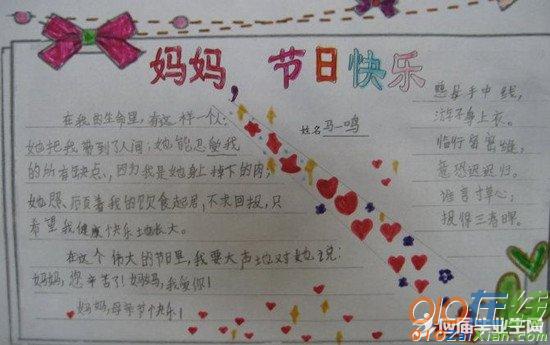 妈妈，节日快乐
姓名 马一鸣
在我的生命里，有这样一个人：
她把我带到了人间；她能忍受我
的所有缺点，因为我是她身上掉下的肉；
她照顾着我的饮食起居，不求回报，只
希望我健康快乐地长大。
在这个伟大的节日里，我要大声地对她说：
妈妈，您辛苦了！妈妈，我爱你！
妈妈，母亲节快乐！
慈母手中线，
游子身上衣。
临行密密缝，
意恐迟迟归。
谁言寸草心，
报得三春晖。
应届毕业生网
010在线
010zaixian.com